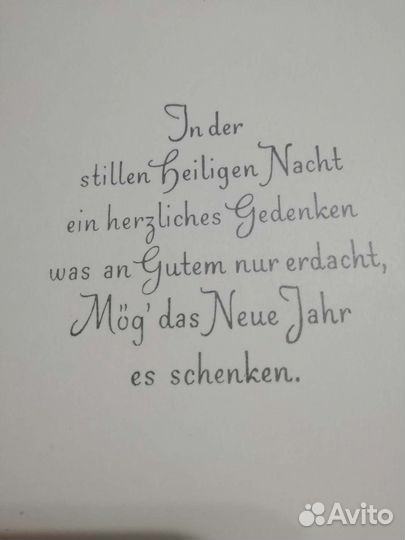 In der
stillen Heiligen Nacht
ein herzliches Gedenken
was an Gutem nur erdacht,
Mög' das Neue Jahr
es schenken.
Avito